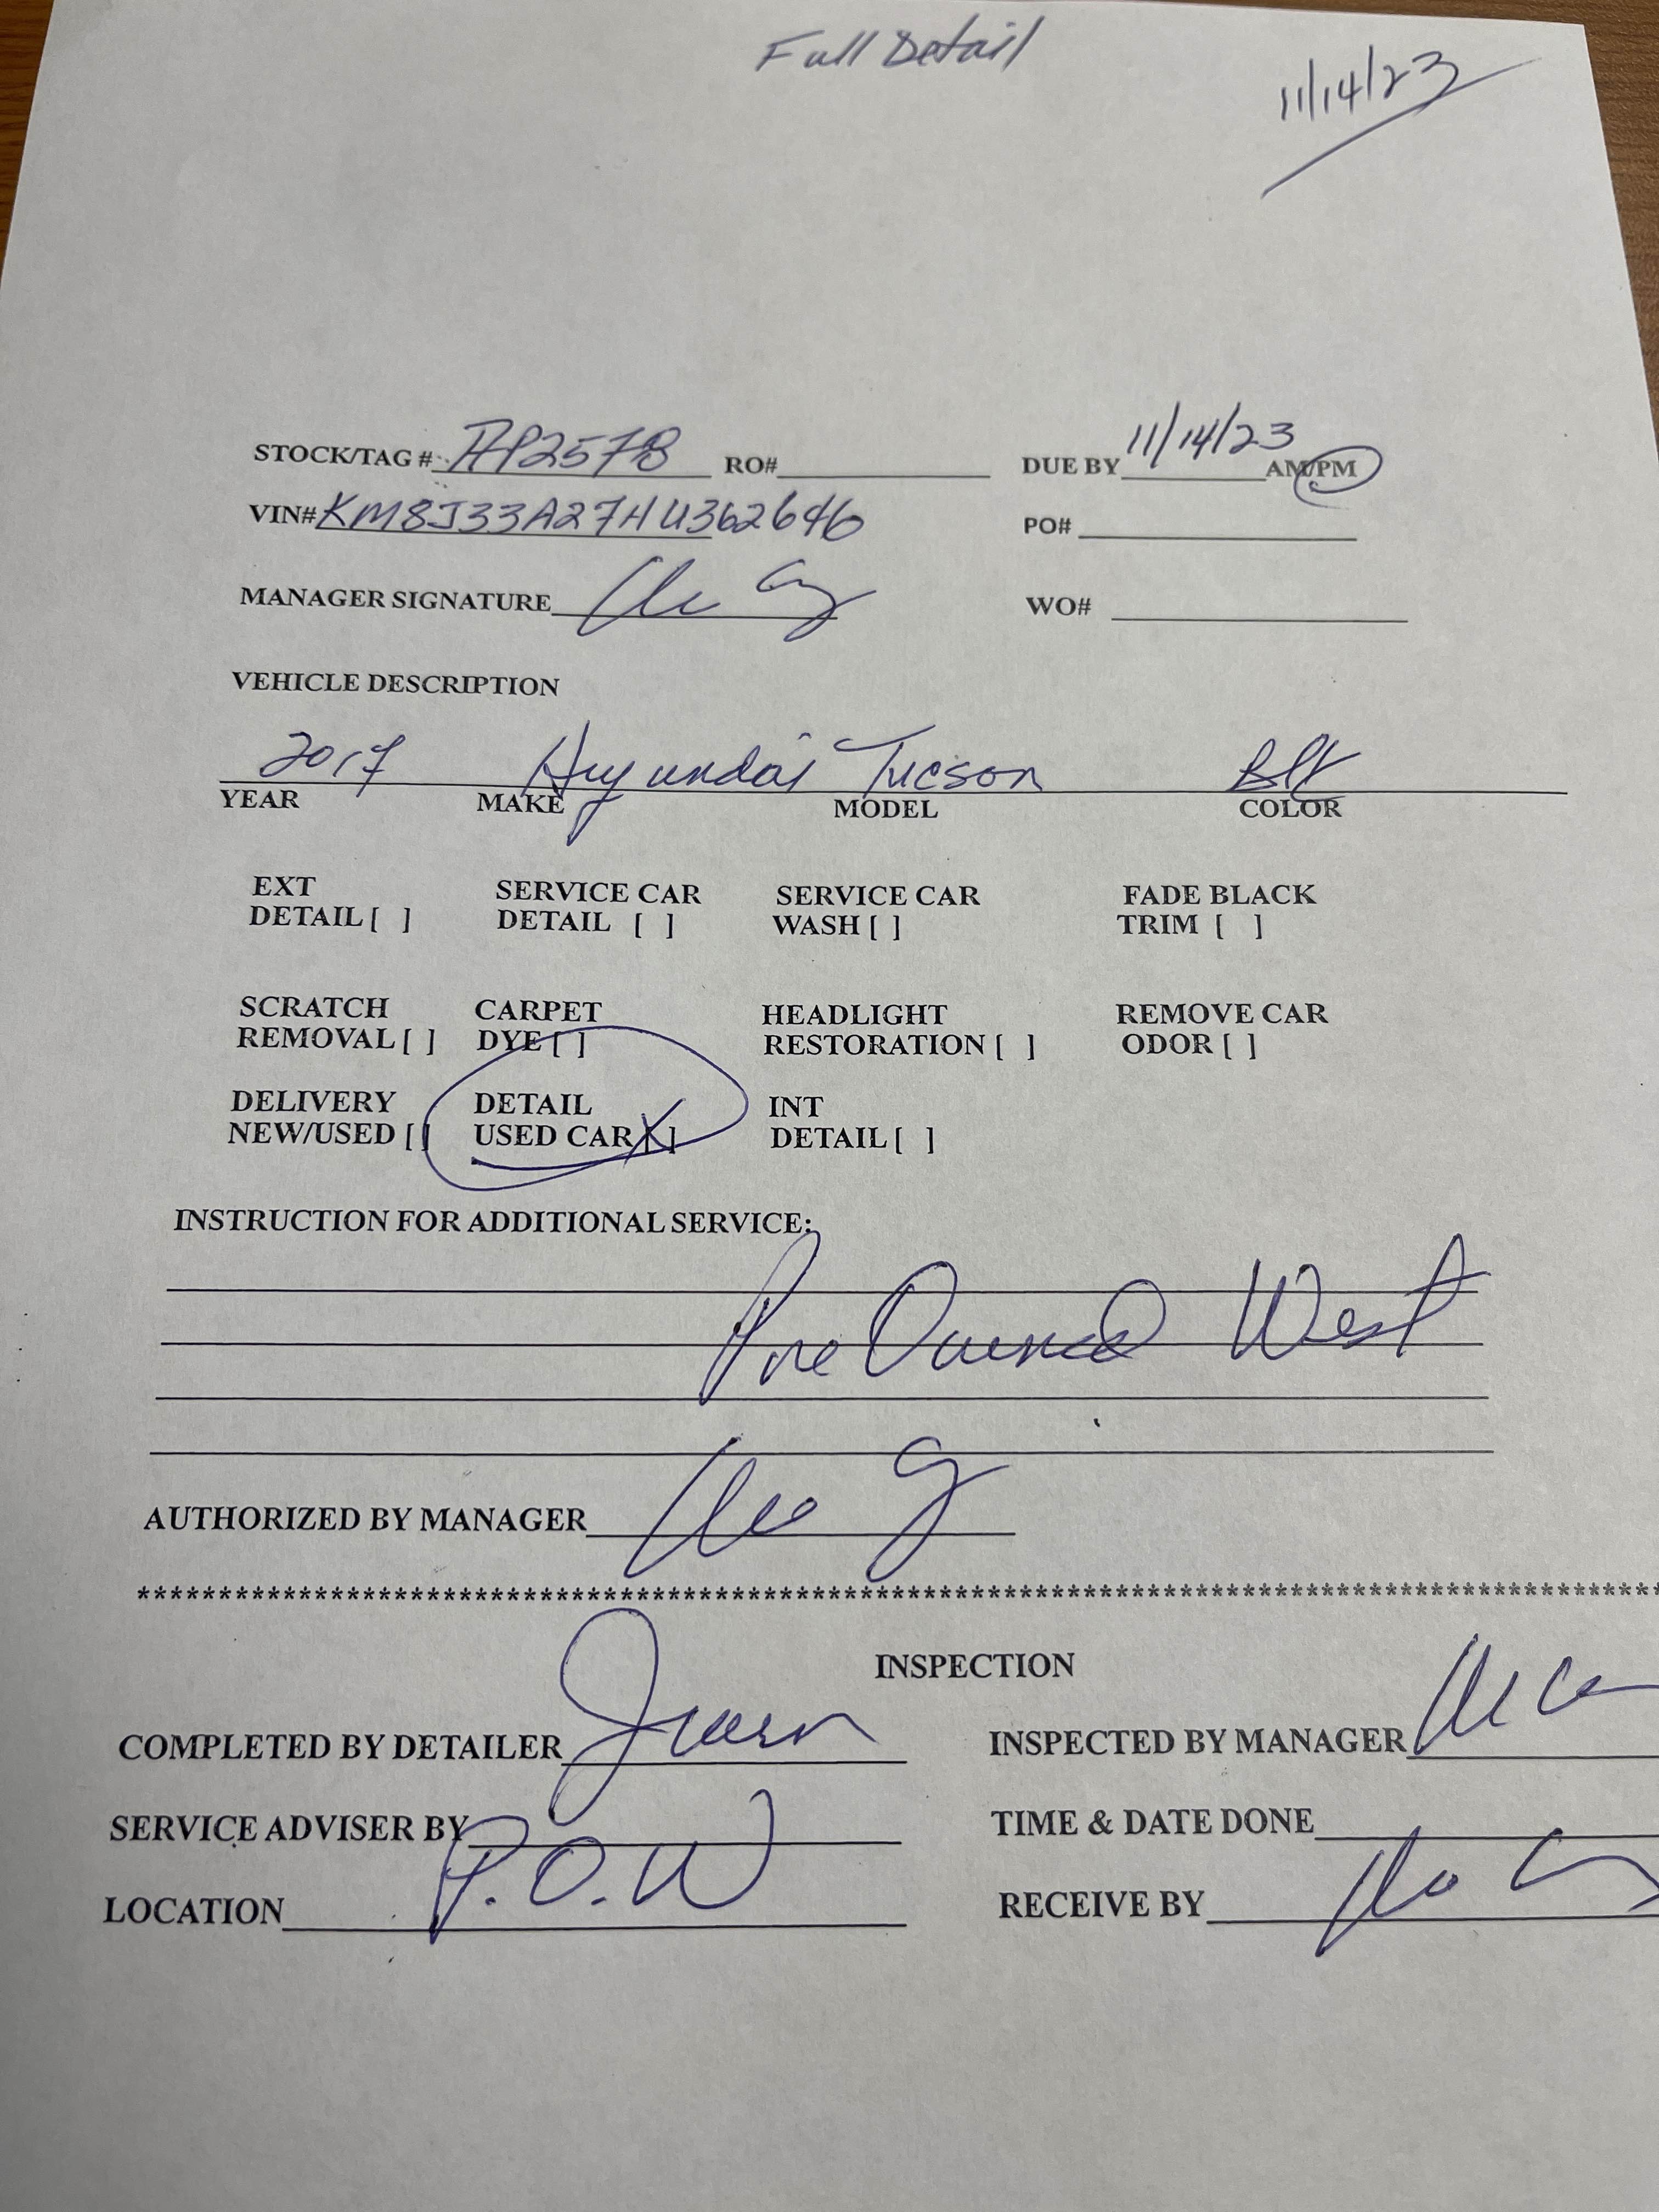 Full Detail
11/14/23
STOCK/TAG # AP257B RO# DUE BY 11/14/23 AM/PM
VIN# KM8J33A27HU362646 PO#
MANAGER SIGNATURE WO#
VEHICLE DESCRIPTION
2017 Hyundai Tucson Blk
YEAR MAKE MODEL COLOR
EXT SERVICE CAR SERVICE CAR FADE BLACK
DETAIL [ ] DETAIL [ ] WASH [ ] TRIM [ ]
SCRATCH CARPET HEADLIGHT REMOVE CAR
REMOVAL [ ] DYE [ ] RESTORATION [ ] ODOR [ ]
DELIVERY DETAIL INT
NEW/USED [ ] USED CAR [X] DETAIL [ ]
INSTRUCTION FOR ADDITIONAL SERVICE:
Pre Owned West
AUTHORIZED BY MANAGER
****************************************************************************************************
INSPECTION
COMPLETED BY DETAILER INSPECTED BY MANAGER
SERVICE ADVISER BY TIME & DATE DONE
LOCATION P.O.W RECEIVE BY